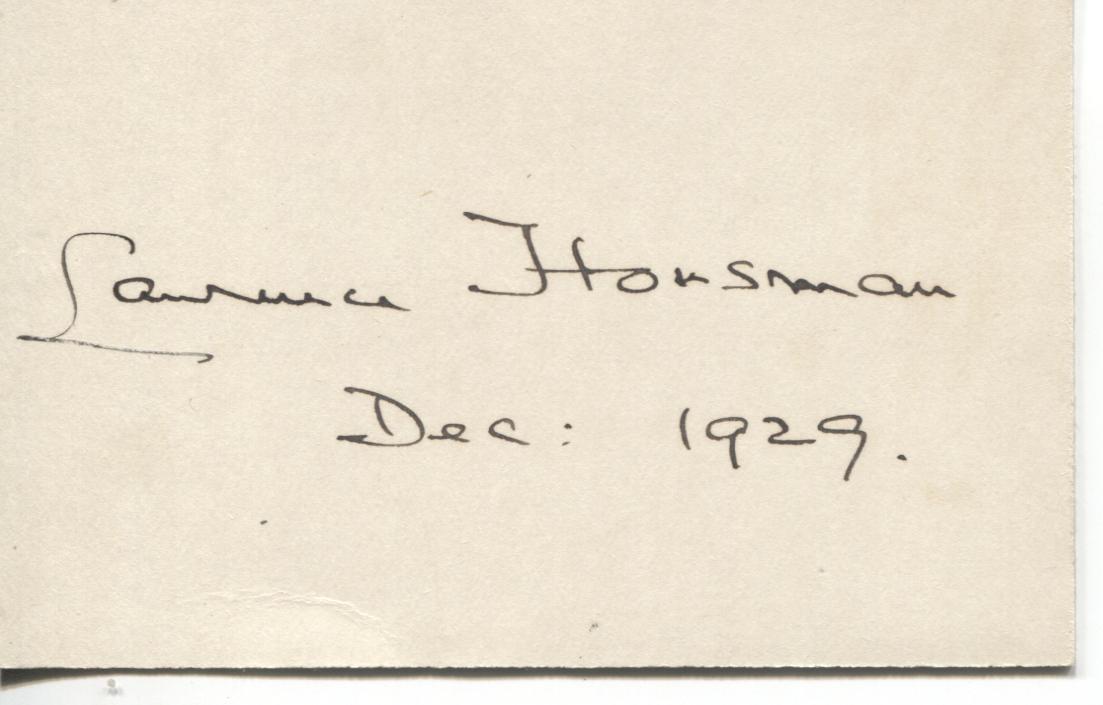 Laurence Housman
Dec: 1929.